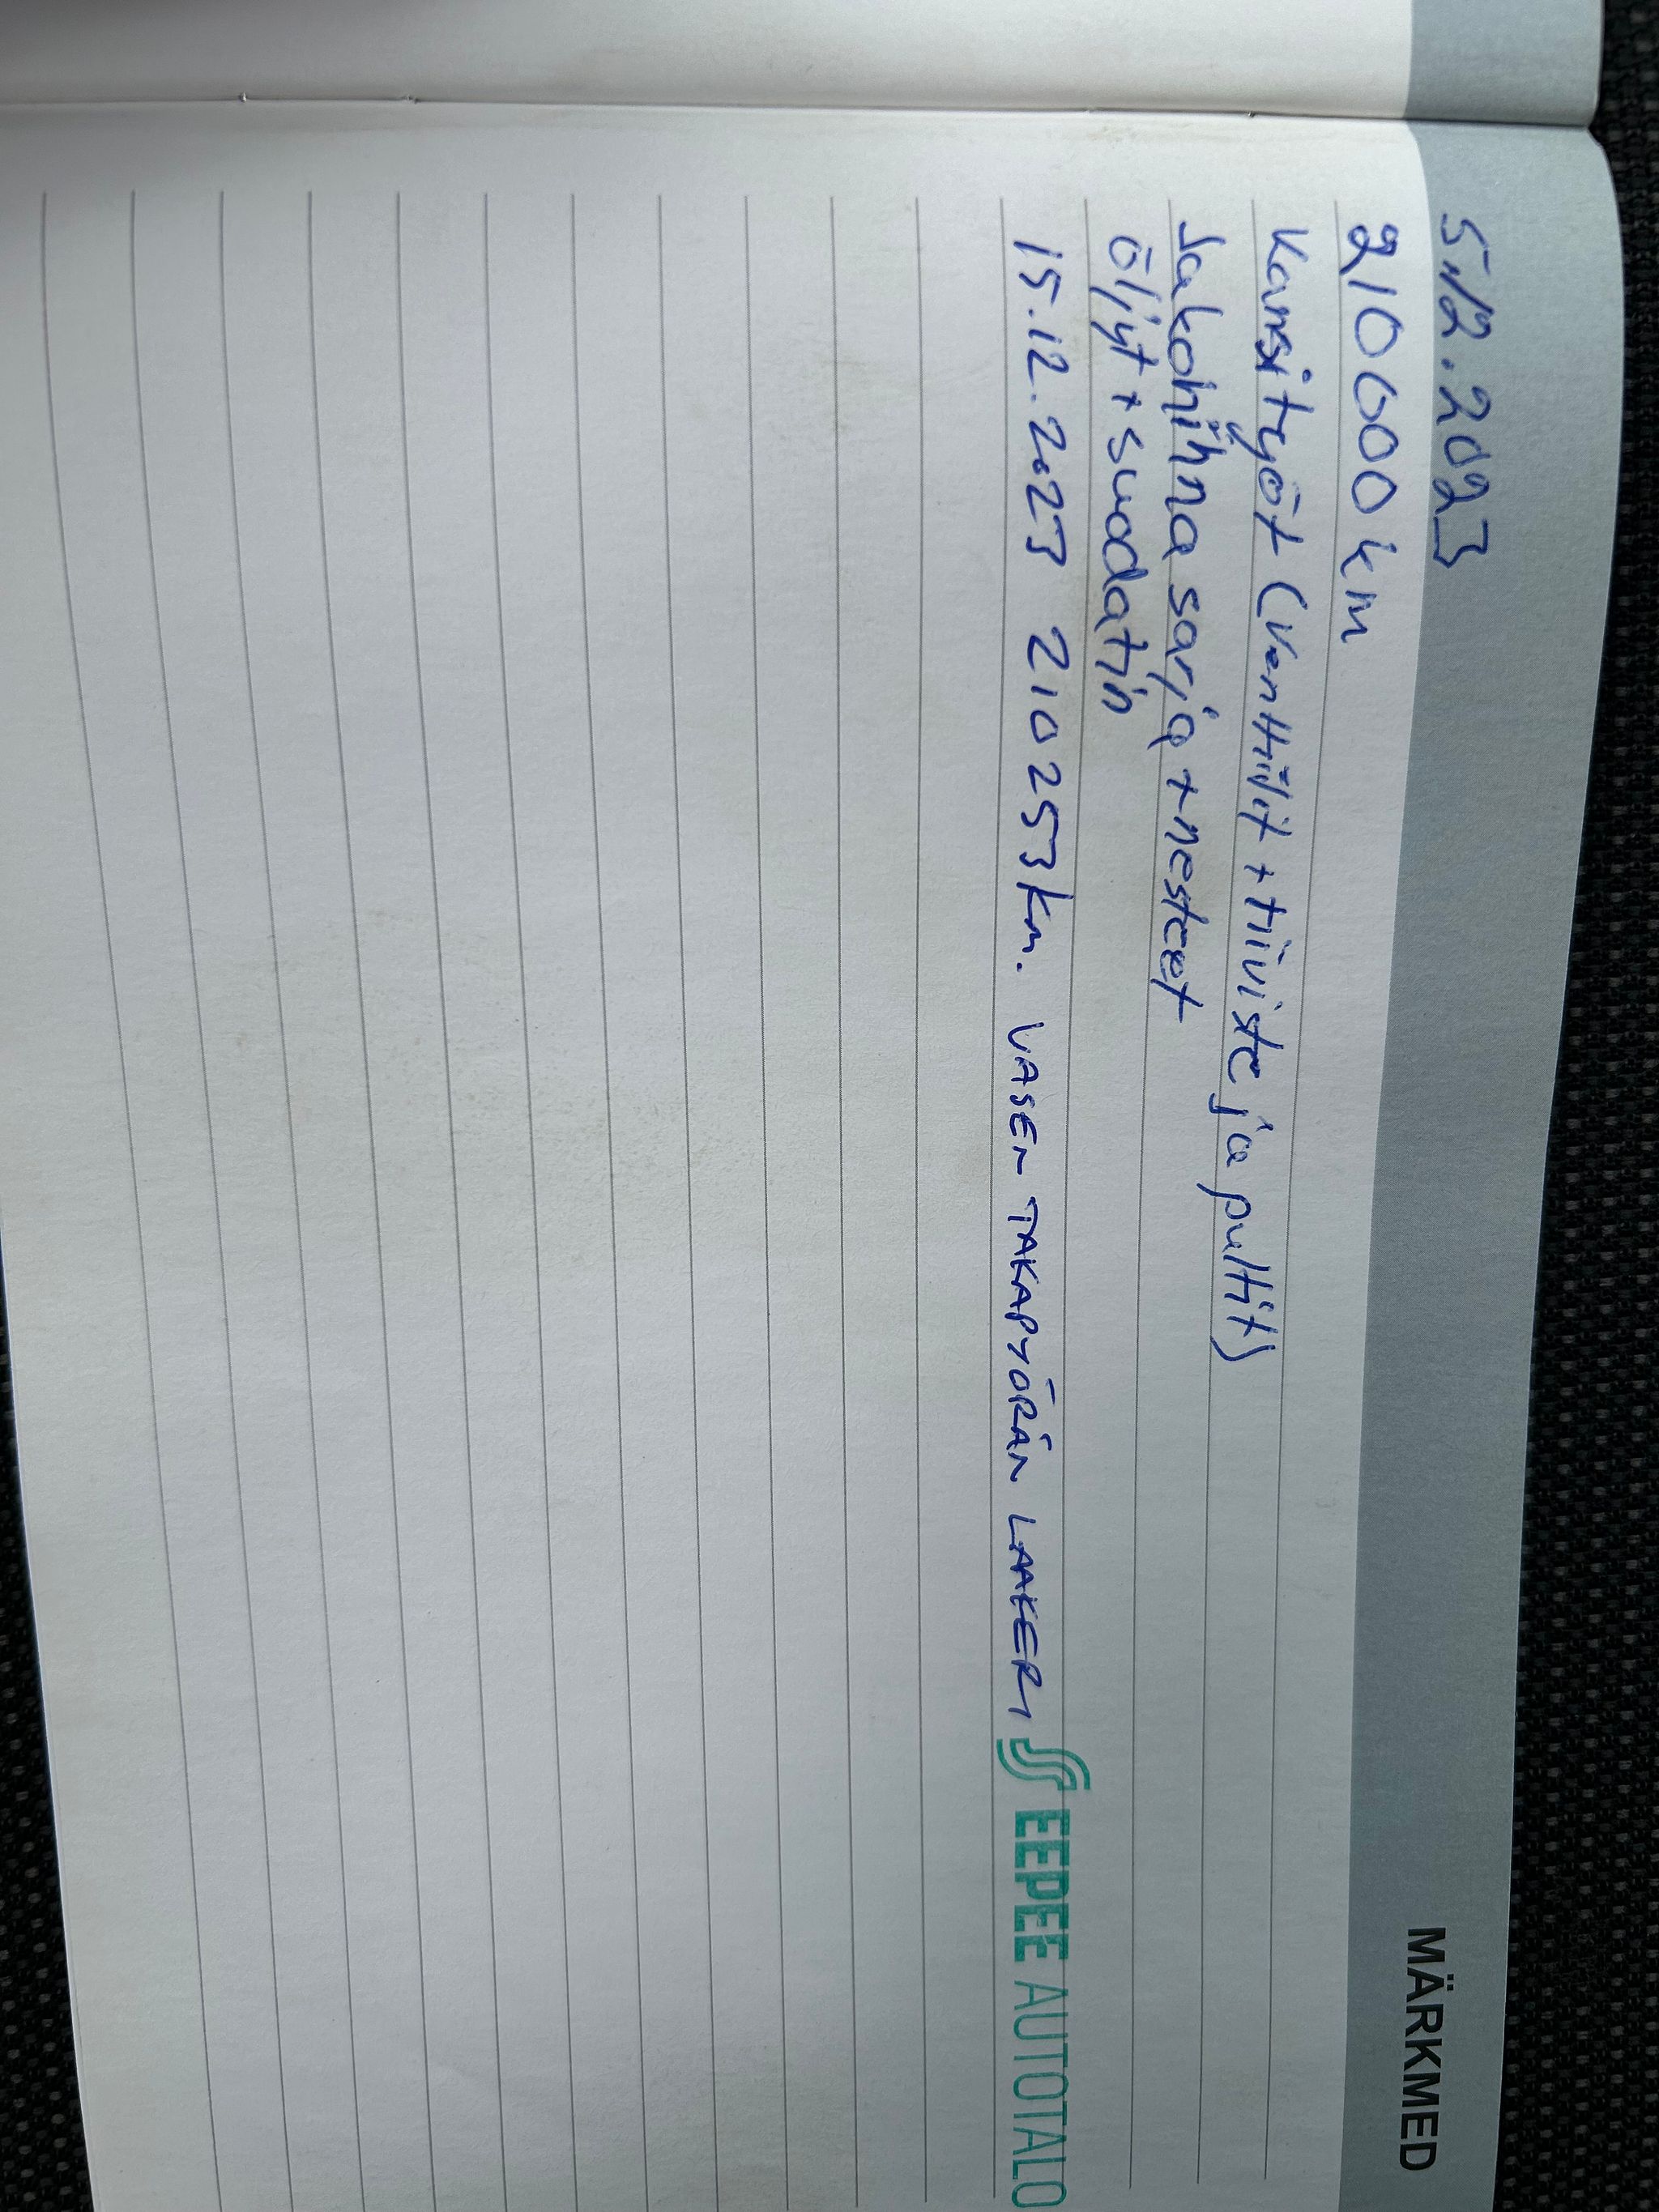 MÄRKMED
5.12.2023
210000 km
Kansityöt (Venttiilit + tiiviste ja pultit)
Jakohihna sarja + nesteet
öljyt + suodatin
15.12.2023 210253km. VASEN TAKAPYÖRÄN LAAKERI EEPEE AUTOTALO